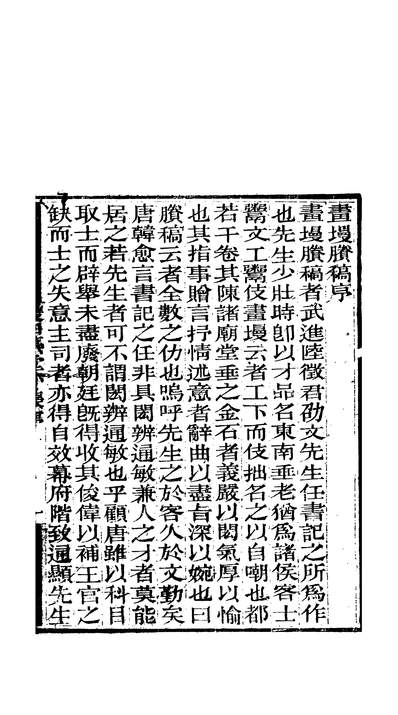 畫墁賸稿序
畫墁賸稿者武進陸徵君劭文先生任書記之所為作
也先生少壯時卽以才品名東南垂老猶為諸侯客士
鬻文工鬻伎畫墁云者工下而伎拙名之以自嘲也都
若干卷其陳諸廟堂垂之金石者義嚴以閎氣厚以愉
也其指事贈言抒情述意者辭曲以盡旨深以婉也曰
賸稿云者全數之仂也嗚呼先生之於客人於文勤矣
唐韓愈言書記之任非具閎辨通敏兼人之才者莫能
居之若先生者可不謂閎辨通敏也乎顧唐雖以科目
取士而辟舉未盡廢朝廷旣得收其俊偉以補王官之
缺而士之失意主司者亦得自效幕府階致通顯先生